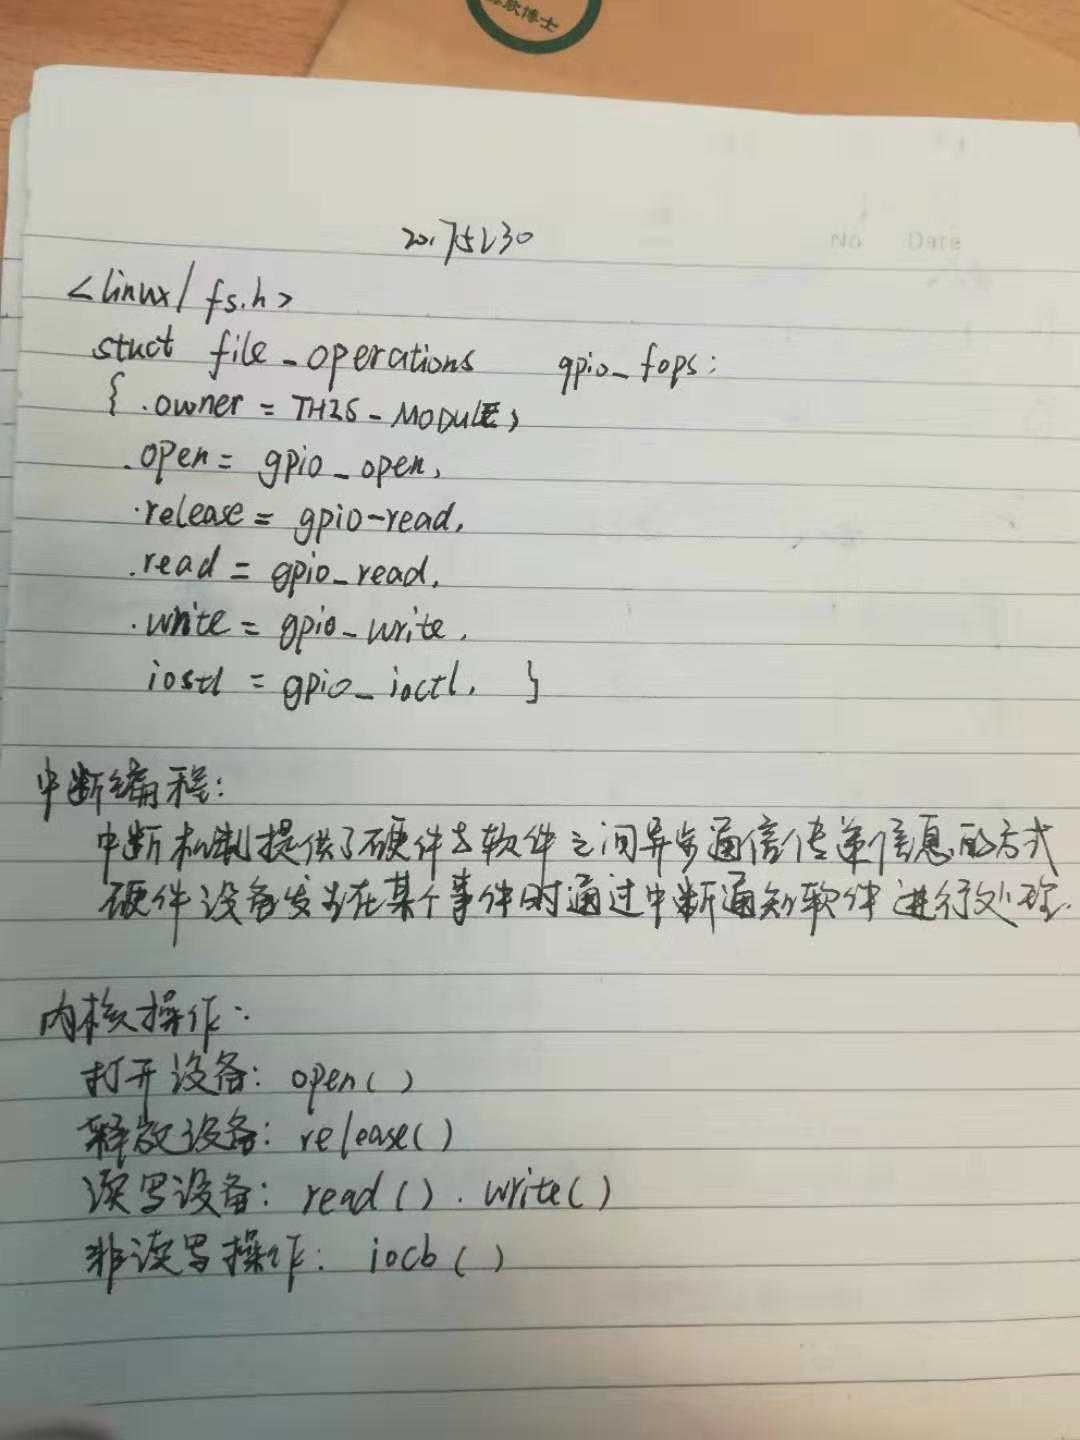 欣博士
20175230
<linux/fs.h>
stuct file_operations gpio_fops:
{ .owner = THIS-MODULE,
.open = gpio_open,
.release = gpio-read,
.read = gpio_read,
.write = gpio_write,
iostl = gpio_ioctl, }
中断编程:
中断机制提供了硬件与软件之间异步通信传递信息的方式
硬件设备发生在某个事件时通过中断通知软件进行处理.
内核操作:
打开设备: open()
释放设备: release()
读写设备: read().write()
非读写操作: iocb()